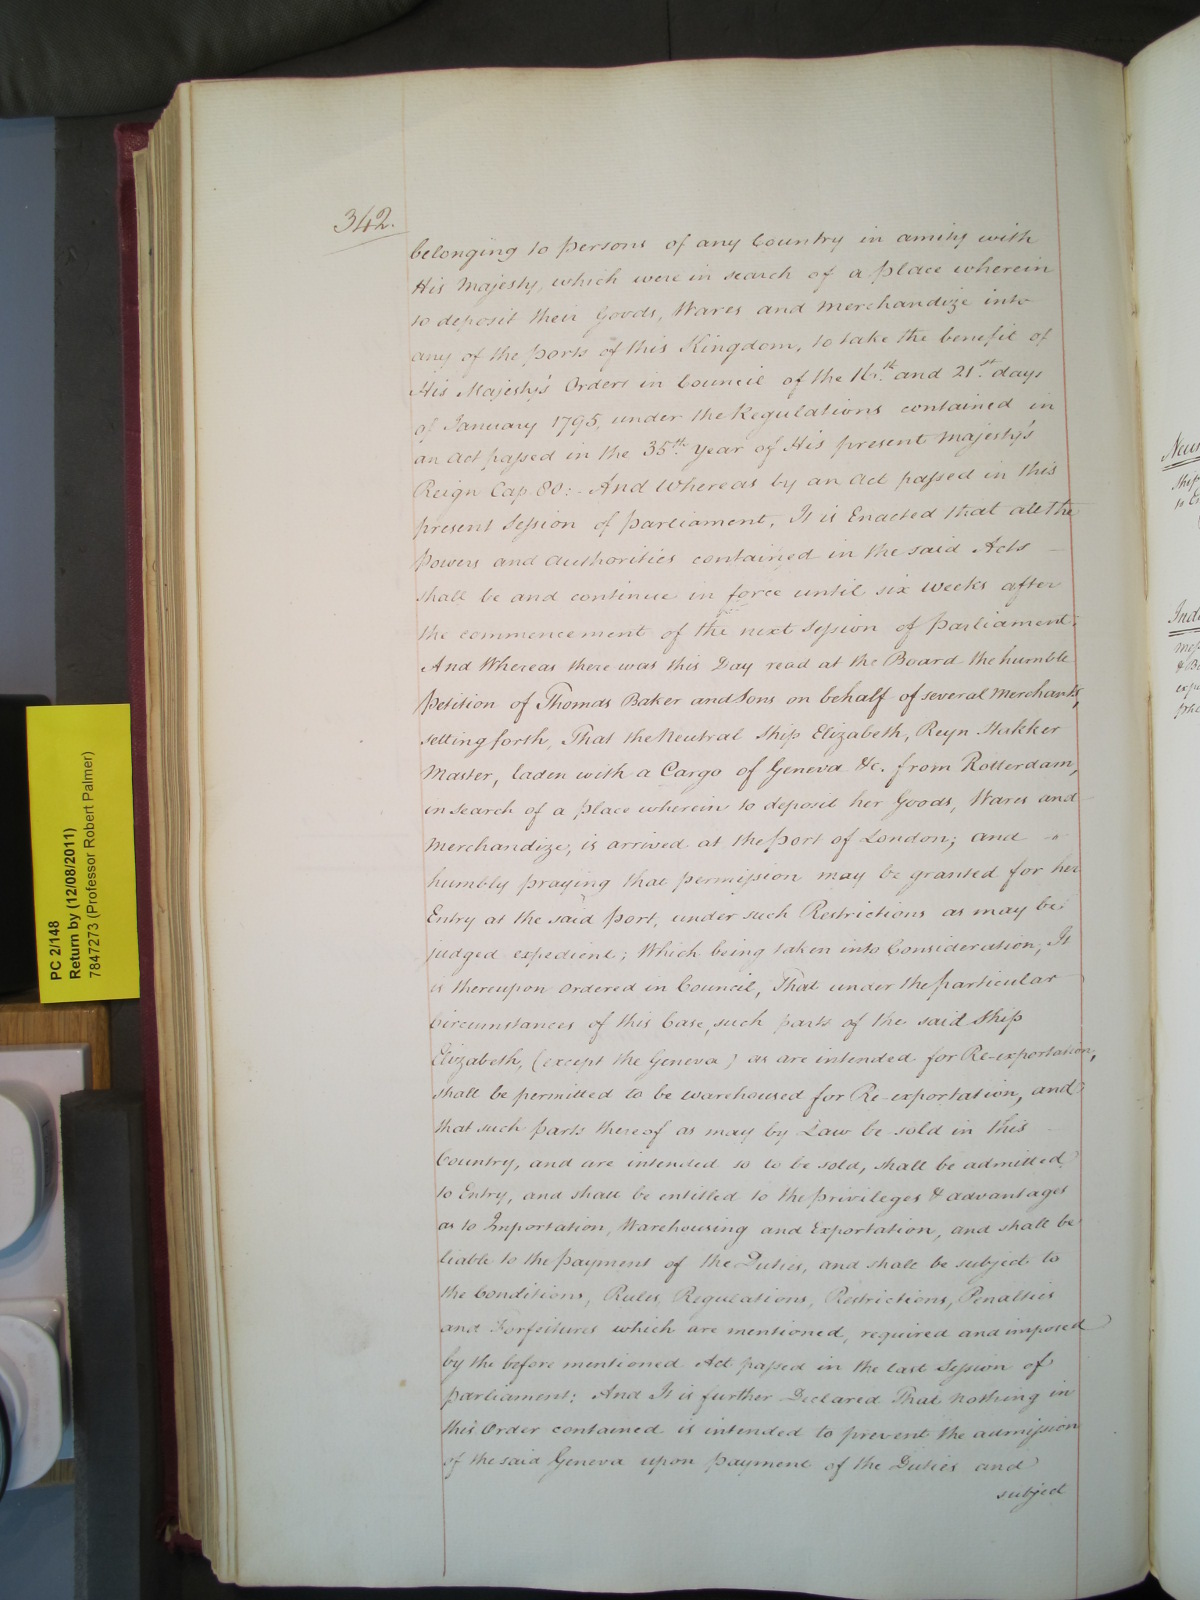 342.
belonging to persons of any Country in amity with
His Majesty, which were in search of a place wherein
to deposit their Goods, Wares and Merchandize into
any of the ports of this Kingdom, to take the benefit of
His Majesty's Orders in Council of the 16th and 21st days
of January 1795, under the Regulations contained in
an Act passed in the 35th Year of His present Majesty's
Reign Cap. 80:- And Whereas by an Act passed in this
present Session of Parliament, It is Enacted that all the
Powers and Authorities contained in the said Acts
shall be and continue in force until six weeks after
the commencement of the next Session of Parliament.
And Whereas there was this Day read at the Board the humble
Petition of Thomas Baker and Sons on behalf of several Merchants,
setting forth, That the Neutral Ship Elizabeth, Reyn Hakker
Master, laden with a Cargo of Geneva &c. from Rotterdam,
in search of a place wherein to deposit her Goods, Wares and
Merchandize, is arrived at the Port of London; and
humbly praying that permission may be granted for her
Entry at the said Port, under such Restrictions as may be
judged expedient; Which being taken into Consideration, It
is thereupon Ordered in Council, That under the particular
Circumstances of this Case, such parts of the said Ship
Elizabeth, (except the Geneva) as are intended for Re-exportation,
shall be permitted to be warehoused for Re-exportation, and
that such parts thereof as may by Law be sold in this
Country, and are intended so to be sold, shall be admitted
to Entry, and shall be entitled to the privileges & advantages
as to Importation, Warehousing and Exportation, and shall be
liable to the payment of the Duties, and shall be subject to
the Conditions, Rules, Regulations, Restrictions, Penalties
and Forfeitures which are mentioned, required and imposed
by the before mentioned Act passed in the last Session of
Parliament: And It is further Declared That nothing in
this Order contained is intended to prevent the admission
of the said Geneva upon payment of the Duties and
subject
PC 2/148
Return by (12/08/2011)
7847273 (Professor Robert Palmer)